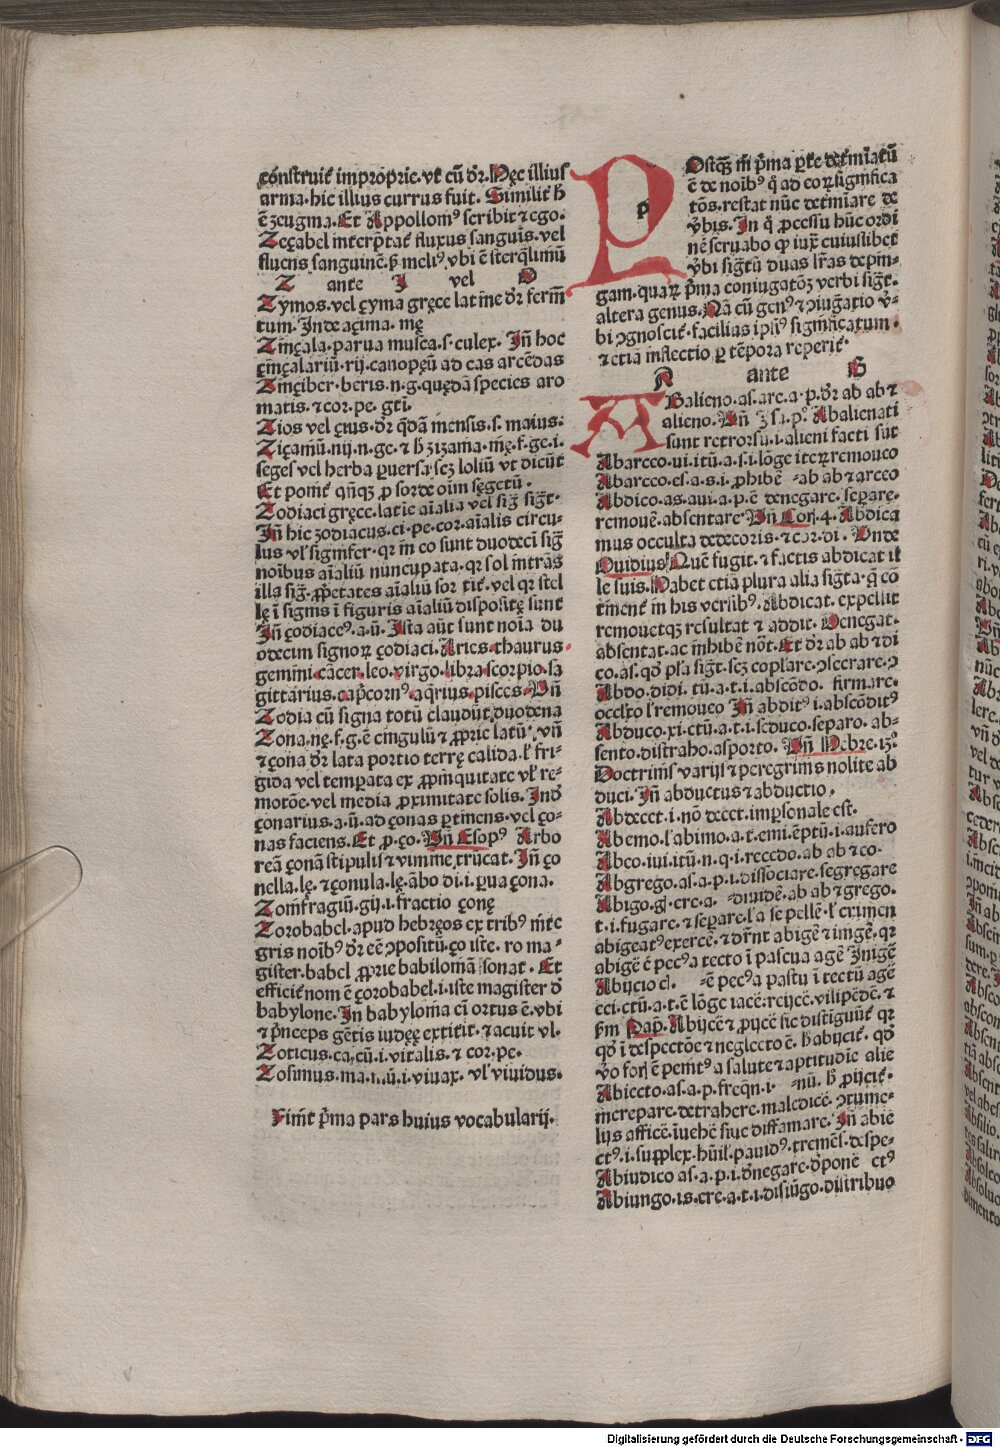 cónstruit̃ improprie. vt̃ cũ dr̃. Hęc illius
arma. hic illius currus fuit. Similit̃ h̃
ẽ zeugma. Et Appollomꝰ scribit ⁊ ego.
Zeçabel interp̃tat̃ fluxus sanguis. vel
fluens sanguinẽ. ß meliꝰ. vbi ẽ sterq̃limũ
Z ante I vel O
Zymos. vel çyma gręce latine dr̃ ferm̃
tum. Inde açima. mę
Zinçala. parua musca. s. culex. Iñ hoc
çinçalariũ. rij. canopęũ ad eas arcẽdas
Zinçiber. beris. n. g. quędã species aro
matis. ⁊ cor. pe. gtĩ.
Zios vel çius. dr̃ q̃dã mensis. s. maius.
Ziçamũ. nij. n. ge. ⁊ h̃ zizama. mę. f. ge. i.
seges vel herba puersa. scz loliũ vt dicũt
Et pomt̃ qñqz p sorde oĩm sęgetũ.
Zodiaci gręce. latie aĩalia vel sig̃ sig̃t.
Iñ hic zodiacus. ci. pe. cor. aĩalis circu-
lus vl̓ signifer. qꝛ in eo sunt duodeci sig̃
noĩbus aĩaliũ nuncupata. qꝛ sol intrãs
illa sig̃. ꝓp̃etates aĩaliũ sor tit̃. vel qꝛ stel
lę ĩ signis ĩ figuris aĩaliũ disposite sunt
Iñ çodiaceꝰ. a. ũ. Ista aũt sunt noĩa du
odecim signoꝝ çodiaci. Aries. thaurus.
gemini. cãcer. leo. virgo. libra. scorpio. sa
gittarius. cap̃cornꝰ. aq̃rius. pisces. Vñ
Zodia cũ signa totũ claudũt duodena
Zona. nę. f. g. ẽ cingulũ ⁊ ꝓprie latũ. vñ
⁊ çona dr̃ lata portio terrę calida. l̓ fri-
gida vel temp̃ata ex ꝓpinquitate vl̓ re-
motõe. vel media ꝓximitate solis. Inđ
çonarius. a. ũ. ad çonas ptinens. vel ço-
nas faciens. Et p. ço. Vñ Esopꝰ Arbo
reã çonã stipulis ⁊ vimine trũcat. Iñ ço
nella. lę. ⁊ çonula. lę. ãbo di. i. parua çona.
Zomfragiũ. gij. i. fractio çonę
Zorobabel. apud hebręos ex tribꝰ int̃e
gris noĩbꝰ dr̃ eẽ ꝯpositũ. ço iste. ro ma-
gister. babel ꝓprie babilomã sonat. Et
efficit̃ nom ẽ çorobabel. i. iste magister đ
babylone. In babylomã ci ortus ẽ. vbi
⁊ p̃nceps gẽtis iudęę extitit. ⁊ acuit vl.
Zoticus. ca. cũ. i. vitalis. ⁊ cor. pe.
Zosimus. ma. i. ũ. i. viuax. vl̓ viuidus.
Finit̃ p̃ma pars huius vocabularij.
Postqz̃ ĩn p̃ma pte det̃miatũ
ẽ de noĩbꝰ q̃ ad eoꝝ significa
tõs. restat nũc det̃miare de
v̓bis. In q̃ ꝓcessu hũc ordi
nẽ seruabo qꝫ iux̃ cuiuslibet
v̓bi sig̃tũ duas lr̃as depin-
gam. quaꝝ p̃ma coniugatõz verbi sig̃t.
altera genus. Nã cũ genꝰ ⁊ ꝯiug̃atio v̓-
bi ꝯgnoscit̃. facilias ip̃iꝰ significatum.
⁊ etiã inflectio p tẽpora reperit̃.
A ante B
ABalieno. as. are. a. p. dr̃ ab ab ⁊
alieno. Vñ Isa. pº. Abalienati
sunt retrorsũ. i. alieni facti sũt
Abarceo. ui. itũ. a. s. i. lõge iteꝝ remoueo
Abarceo. es. a. s. i. ꝓhibẽ -ab ab ⁊ arceo
Abdico. as. aui. a. p. ẽ denegare. separe.
remouẽ. absentare. Vñ Corĩ. 4. Abdica
mus occulta dedecoris. ⁊ cor. di. Vnde
Ouidius Quẽ fugit. ⁊ factis abdicat il
le suis. Habet etiã plura alia sig̃ta. q̃ cõ
tinent̃ in his versibꝰ. Abdicat. expellit
remouetqz resultat ⁊ addit. Denegat.
absentat. ac inhibẽ nõt. Et dr̃ ab ab ⁊ di
co. as. qđ p̃la sig̃t. scz coplare. ꝯsecrare. ꝯ
Abdo. didi. tũ. a. t. i. abscõdo. firmare.
occl̃to l̓ remoueo Iñ abditꝰ i. abscõditꝰ
Abduco. xi. ctũ. a. t. i. seduco. separo. ab-
sento. distraho. asporto. Vñ Hebre. 13º
Doctrinis varijs ⁊ peregrinis nolite ab
duci. Iñ abductus ⁊ abductio.
Abdecet. i. nõ decet. imp̃sonale est.
Abemo. l̓ abimo. a. t. emi. ẽptũ. i. aufero
Abeo. iui. itũ. n. q. i. recedo. ab ab ⁊ eo.
Abgrego. as. a. p. i. dissociare. segregare
Abigo. gi. ere. a. -diuidẽ. ab ab ⁊ grego.
t. i. fugare. ⁊ sepãre. l̓ a se pellẽ. l̓ crimen
abigeatꝰ exercẽ. ⁊ dr̃nt abigẽ ⁊ imgẽ. qꝛ
abigẽ ẽ pecꝰ a tecto ĩ pascua agẽ Inigẽ
Abijcio ci. -ẽ pecꝰ a pastu ĩ tectũ agẽ
eci. ctũ. a. t. ẽ lõge iacẽ. reijcẽ. vilipẽdẽ. ⁊
ßm Pap̃. Abijcẽ ⁊ ꝓijcẽ sic distiguũt̃ qꝛ
qđ ĩ despectõe ⁊ neglecto ẽ. h̃ abijcit̃. qđ
v̓o fori ẽ pemt̃ꝰ a salute ⁊ aptitudie alie
Abiecto. as. a. p. freq̃n. i. -nũ. h̃ ꝓijcit̃.
increpare. detrahere. maledicẽ. ꝯtume-
lijs afficẽ. ĩuehẽ siue diffamare. Iñ abie
ctꝰ. i. supplex. hũil̓. pauidꝰ. tremẽs. despe-
Abiudico as. a. p. i. đnegare. đponẽ ctꝰ
Abiungo. is. ere. a. t. i. disiũgo. distribuo
Digitalisierung gefördert durch die Deutsche Forschungsgemeinschaft - DFG